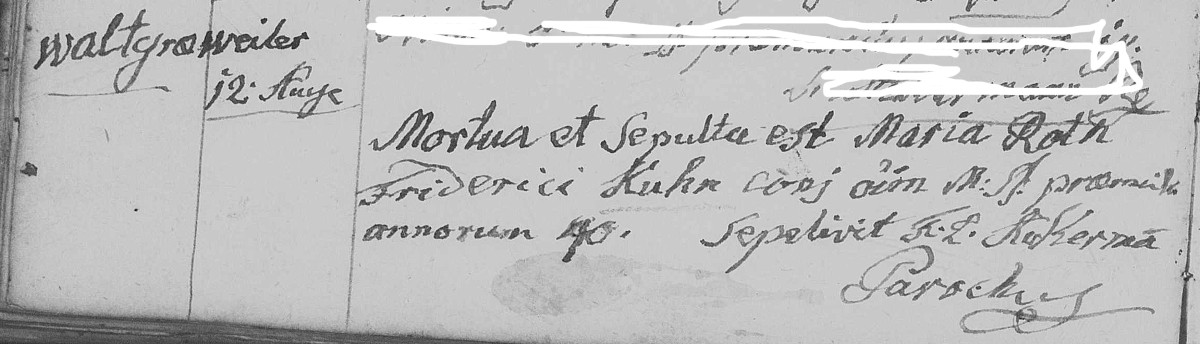 Waltgraweiler
12. Augc
Mortua et Sepulta est Maria Roth
Friderici Kuhn conj oim M: SS. præmuk
annorum 40. Sepelivit F. L. Akermã
Parochus